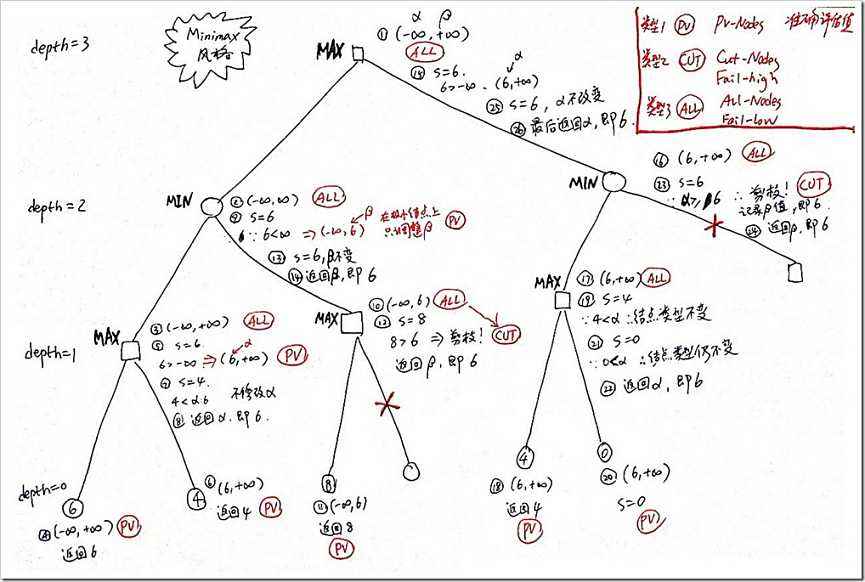 depth=3
Minimax
风格
MAX
α β
① (-∞, +∞)
ALL
⑮ S=6.
α
6>-∞. (6,+∞)
㉕ S=6, α不改变
㉖ 最后返回α, 即6.
类型1 PV PV-Nodes 准确评估值
类型2 CUT Cut-Nodes
Fail-high
类型3 ALL All-Nodes
Fail-low
depth=2
MIN
② (-∞,∞) ALL
⑨ S=6
β
∵ 6<∞ ⇒ (-∞,6) 在极小结点上
只调整β
PV
⑬ S=6, β不变
⑭ 返回β, 即6
MIN
⑯ (6,+∞) ALL
㉓ S=6
∵ α≥β6 ∴ 剪枝!
CUT
记录β值, 即6.
㉔ 返回β, 即6
depth=1
MAX
③ (-∞,+∞) ALL
⑤ S=6.
α
6>-∞ ⇒ (6,+∞) PV
⑦ S=4.
4<α.6 不修改α
⑧ 返回α. 即6.
MAX
⑩ (-∞,6) ALL
⑫ S=8
8>6 ⇒ 剪枝!
CUT
返回β, 即6
MAX
⑰ (6,+∞) ALL
⑲ S=4
∵4<α ∴结点类型不变
㉑ S=0
∵0<α ∴结点类型仍不变
㉒ 返回α, 即6
depth=0
6
④ (-∞,+∞) PV
返回6
4
⑥ (6,+∞)
返回4 PV
8
⑪ (-∞,6)
返回8
PV
4
⑱ (6,+∞)
返回4
PV
0
⑳ (6,+∞)
S=0
PV